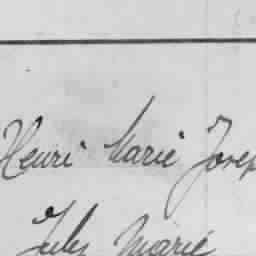 Henri Marie Josep
Jules Marie